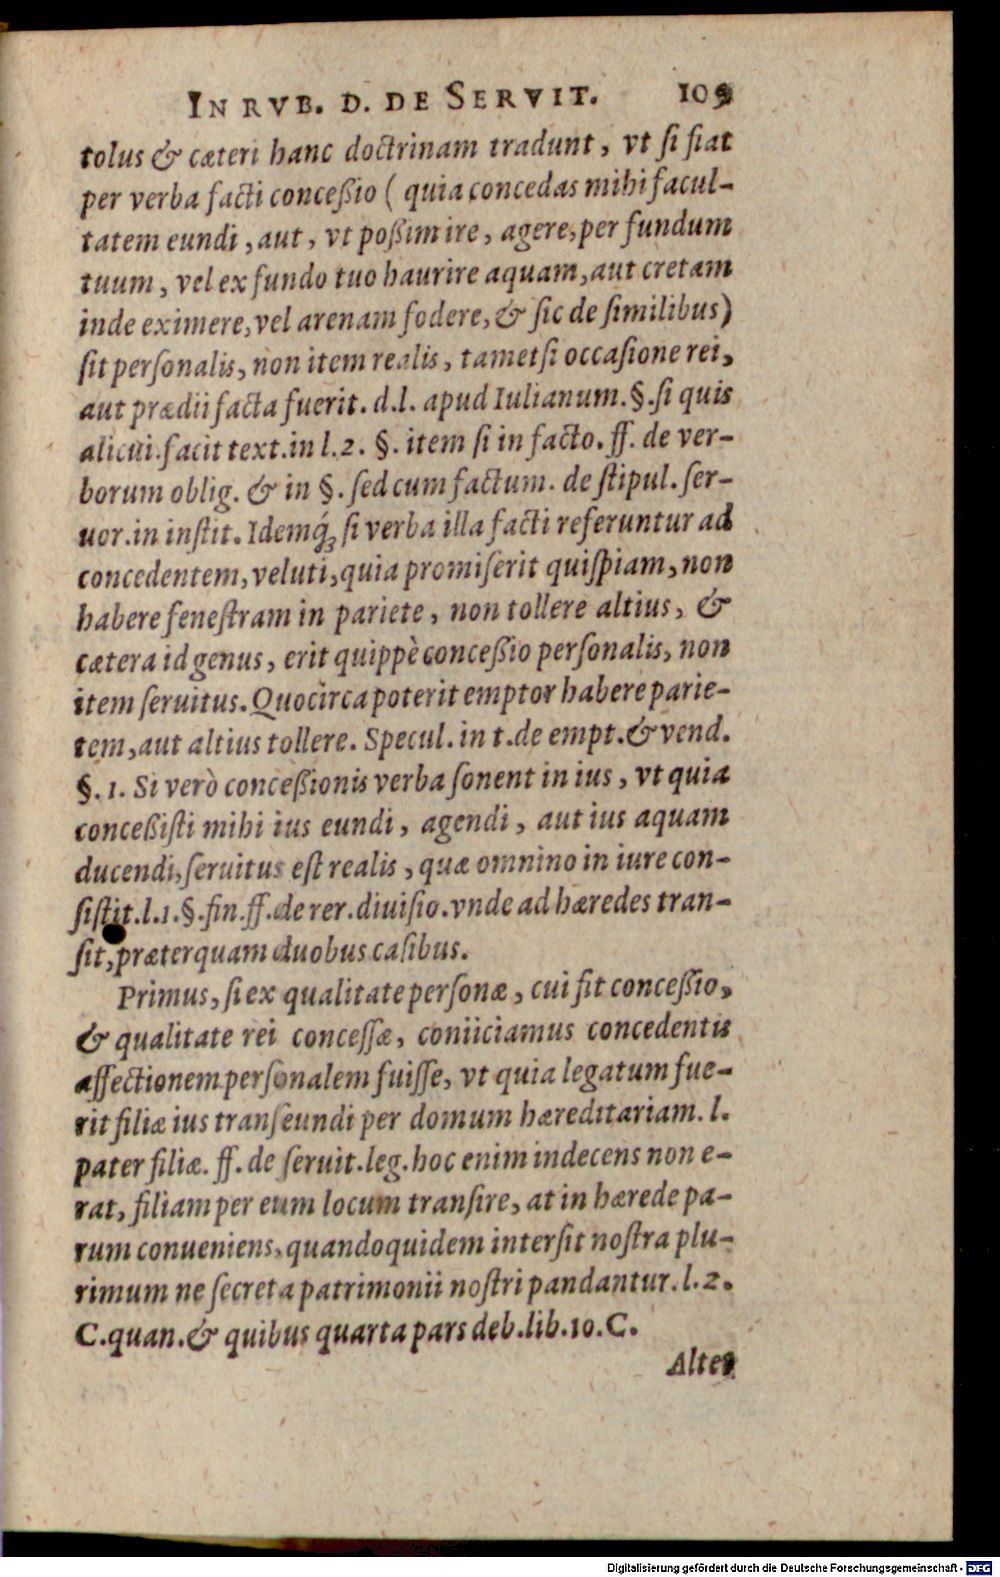 IN RVB. D. DE SERVIT. 109
tolus & cæteri hanc doctrinam tradunt, vt ſi fiat
per verba facti conceßio ( quia concedas mihi facul-
tatem eundi, aut, vt poßim ire, agere, per fundum
tuum, vel ex fundo tuo haurire aquam, aut cretam
inde eximere, vel arenam fodere, & ſic de ſimilibus)
ſit perſonalis, non item realis, tametſi occaſione rei,
aut prædii facta fuerit. d.l. apud Iulianum. §. ſi quis
alicui. facit text. in l.2. §. item ſi in facto. ff. de ver-
borum oblig. & in §. ſed cum factum. de ſtipul. ſer-
uor. in inſtit. Idemq́ꝫ ſi verba illa facti referuntur ad
concedentem, veluti, quia promiſerit quiſpiam, non
habere feneſtram in pariete, non tollere altius, &
cætera id genus, erit quippè conceßio perſonalis, non
item ſeruitus. Quocirca poterit emptor habere parie-
tem, aut altius tollere. Specul. in t. de empt. & vend.
§. 1. Si verò conceßionis verba ſonent in ius, vt quia
conceßiſti mihi ius eundi, agendi, aut ius aquam
ducendi, ſeruitus eſt realis, quæ omnino in iure con-
ſiſtit. l.1. §. fin. ff. de rer. diuiſio. vnde ad hæredes tran-
ſit, præterquam duobus caſibus.
Primus, ſi ex qualitate perſonæ, cui fit conceſſio,
& qualitate rei conceſſæ, coniiciamus concedentis
affectionem perſonalem fuiſſe, vt quia legatum fue-
rit filiæ ius tranſeundi per domum hæreditariam. l.
pater filiæ. ff. de ſeruit. leg. hoc enim indecens non e-
rat, filiam per eum locum tranſire, at in hærede pa-
rum conueniens, quandoquidem interſit noſtra plu-
rimum ne ſecreta patrimonii noſtri pandantur. l.2.
C. quan. & quibus quarta pars deb. lib. 10. C.
Alter
Digitalisierung gefördert durch die Deutsche Forschungsgemeinschaft - DFG